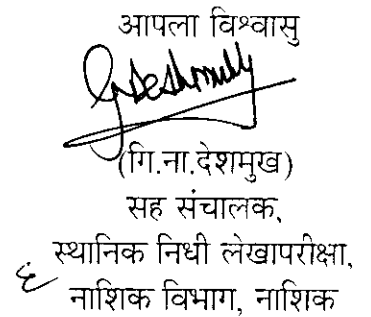 आपला विश्वासु
GDeshmukh
(गि.ना.देशमुख)
सह संचालक,
स्थानिक निधी लेखापरीक्षा,
नाशिक विभाग, नाशिक